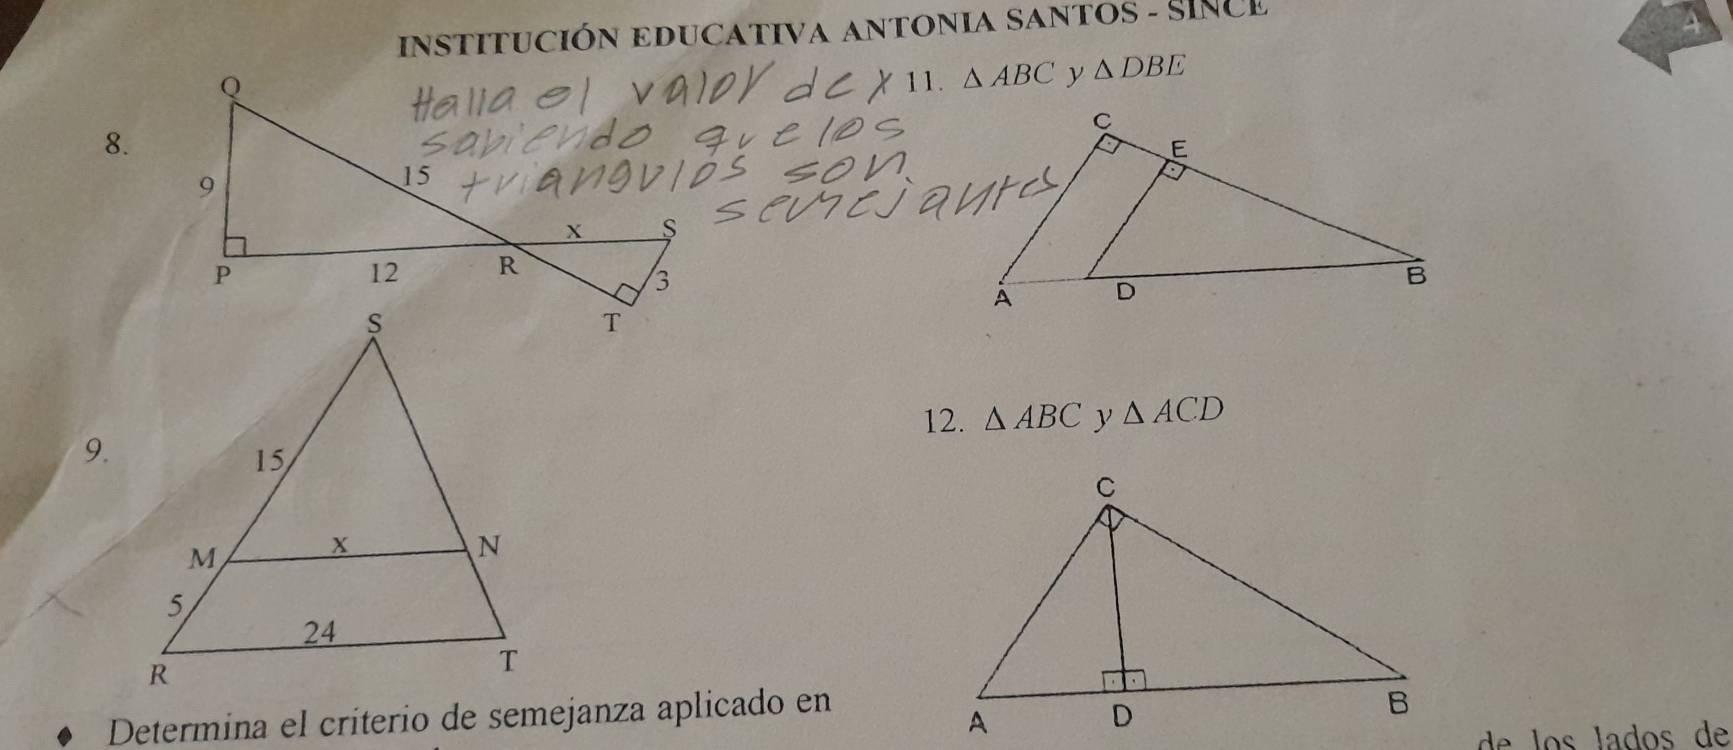 INSTITUCIÓN EDUCATIVA ANTONIA SANTOS - SINCÉ
4
Halla el valor de x
sabiendo que los
triangulos son
semejantes
8.
Q
9
15
x
S
P
12
R
3
T
9.
S
15
M
x
N
5
24
R
T
Determina el criterio de semejanza aplicado en
11. Δ ABC y Δ DBE
C
E
A
D
B
12. Δ ABC y Δ ACD
C
A
D
B
de los lados de